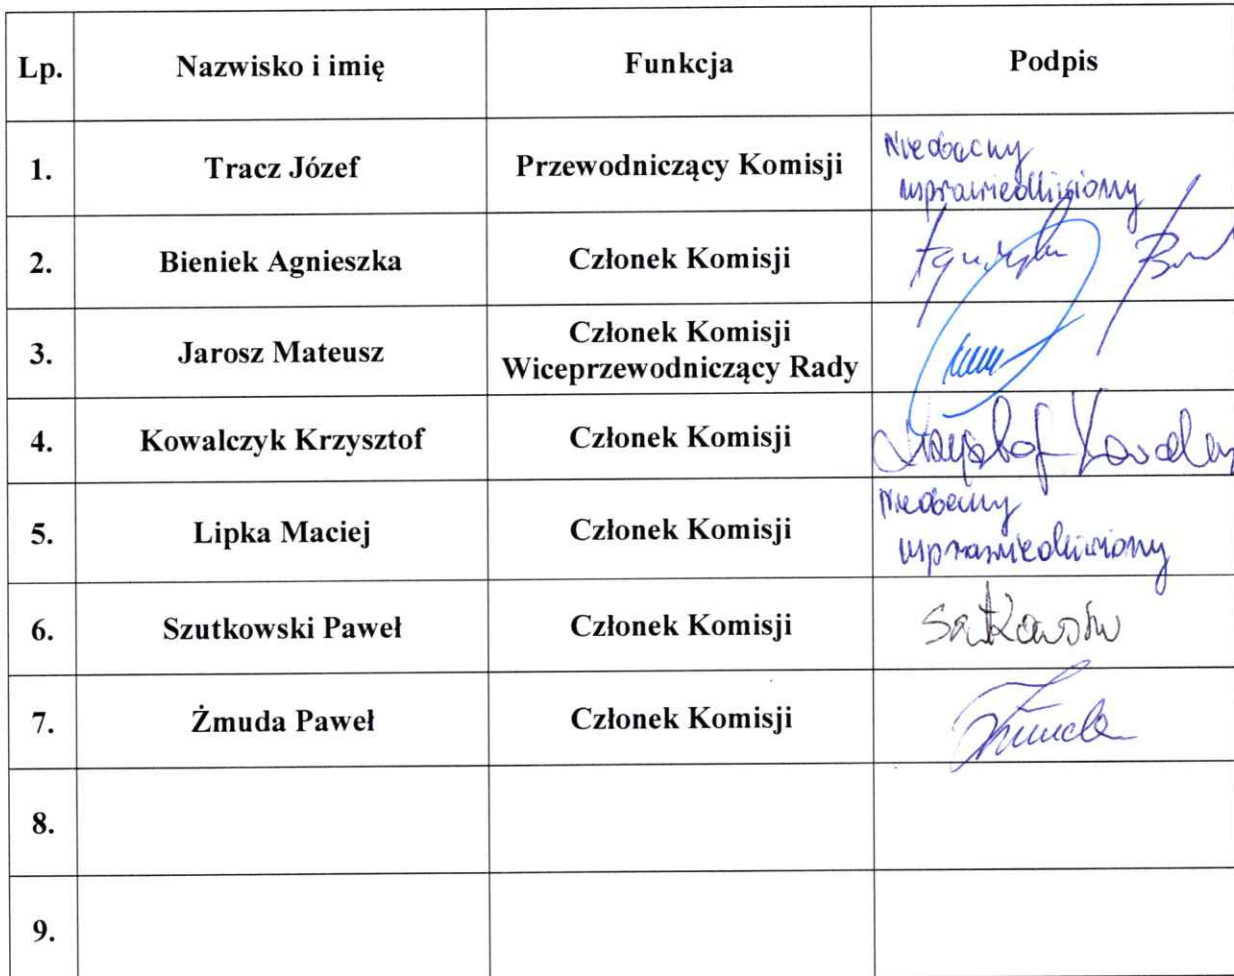 Lp. Nazwisko i imię Funkcja Podpis
1. Tracz Józef Przewodniczący Komisji Nieobecny
usprawiedliwiony
2. Bieniek Agnieszka Członek Komisji
3. Jarosz Mateusz Członek Komisji
Wiceprzewodniczący Rady
4. Kowalczyk Krzysztof Członek Komisji
5. Lipka Maciej Członek Komisji Nieobecny
usprawiedliwiony
6. Szutkowski Paweł Członek Komisji
7. Żmuda Paweł Członek Komisji Żmuda
8.
9.